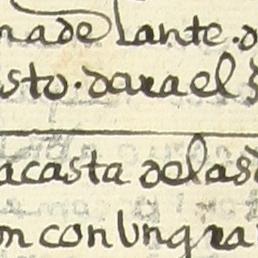 nade lante. d
sto. dara el
a casta de las
on con Un gra